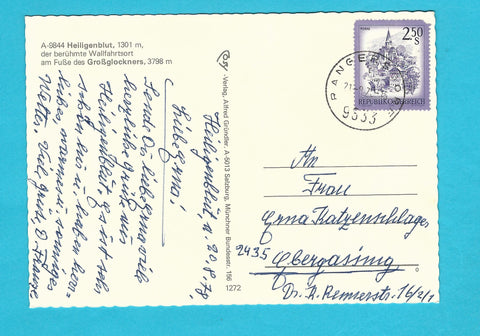 A-9844 Heiligenblut, 1301 m,
der berühmte Wallfahrtsort
am Fuße des Großglockners, 3798 m
Heiligenblut, 20.8.78,
Liebe Erna!
Sende Dir liebe
herzliche Grüße aus
Heiligenblut es ist sehr
schön hier u. haben
warmes u. sonniges
Wetter. Viel
Verlag Alfred Gründler, A-5013 Salzburg, Münchner Bundesstr. 156
1272
2.50
S
REPUBLIK ÖSTERREICH
RANGERSDORF
9833
An
Frau
Erna Katzenschlager
2435 Ebergassing
Dr. K. Rennerstr. 16/2/1